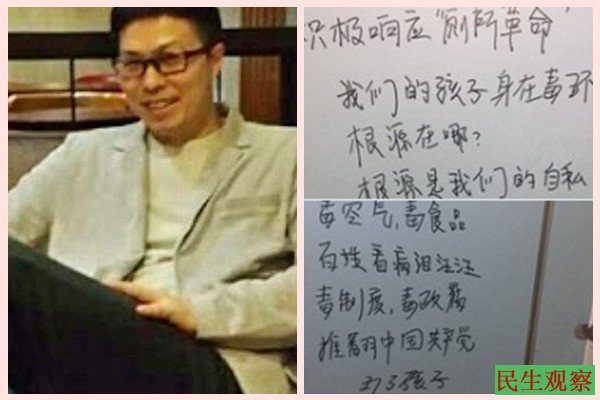 积极响应“厕所革命”
我们的孩子身在毒环
根源在哪?
根源是我们的自私
毒空气,毒食品
百姓看病泪汪汪
毒制度,毒政府
推翻中国共产党
为了孩子
民生观察